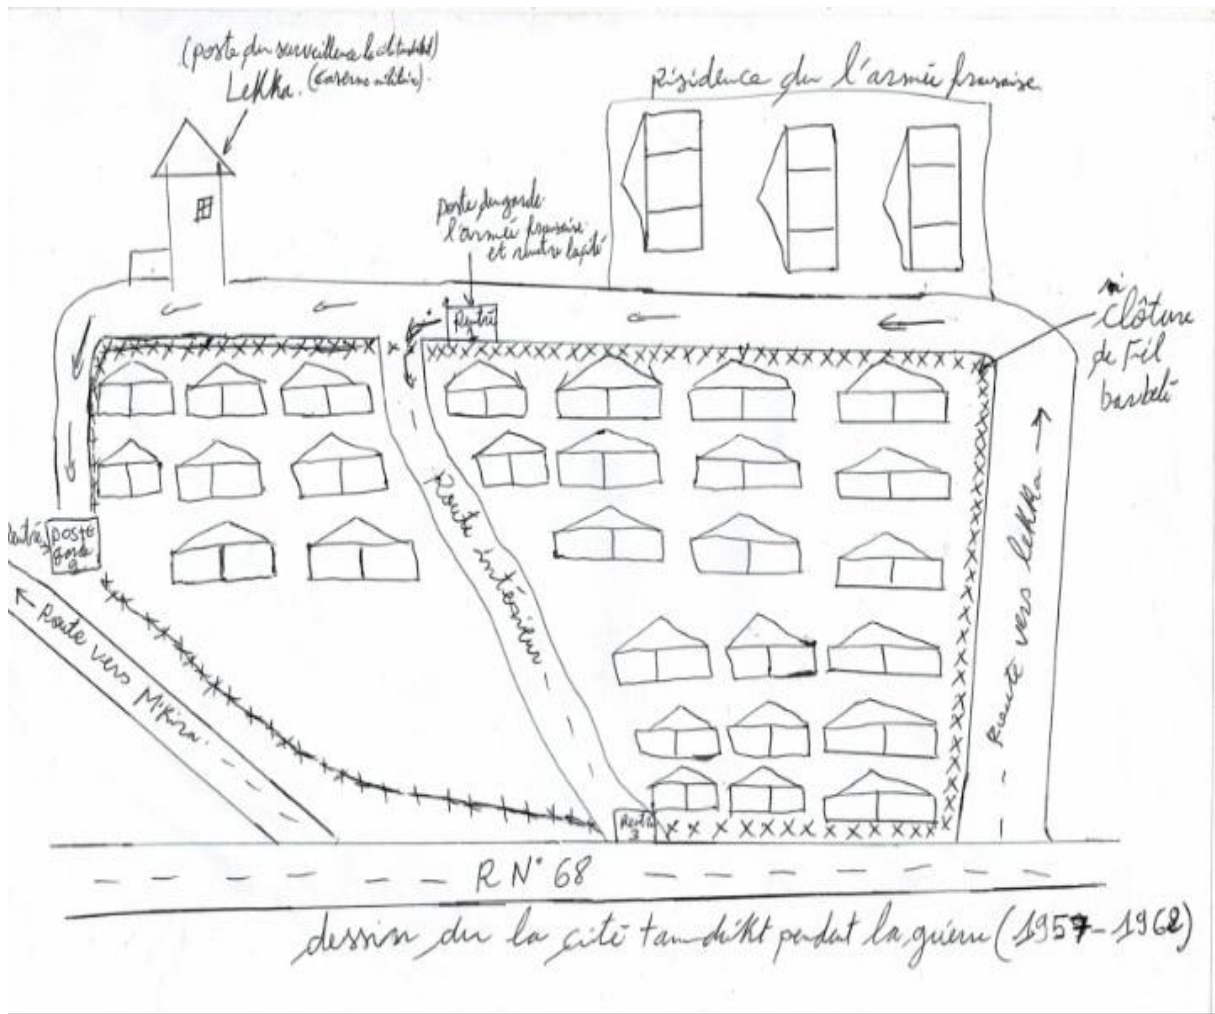 (poste du surveillance la cité tamdikt)
Lekka. (caserne militaire).
résidence du l'armée française
poste du garde
l'armée française
et rentre la cité
Rentré
1
clôture
de Fil
barbelé
Rentré
poste
garde
2
Route intérieur
Route vers lekka
← Route vers M'Kira.
Rentré
3
R N° 68
dessin du la cité tamdikt pendat la guerre (1957-1962)